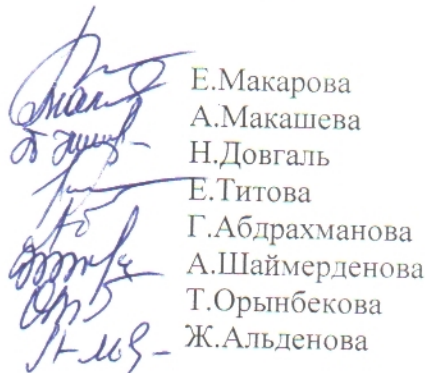 Е.Макарова
А.Макашева
Н.Довгаль
Е.Титова
Г.Абдрахманова
А.Шаймерденова
Т.Орынбекова
Ж.Альденова